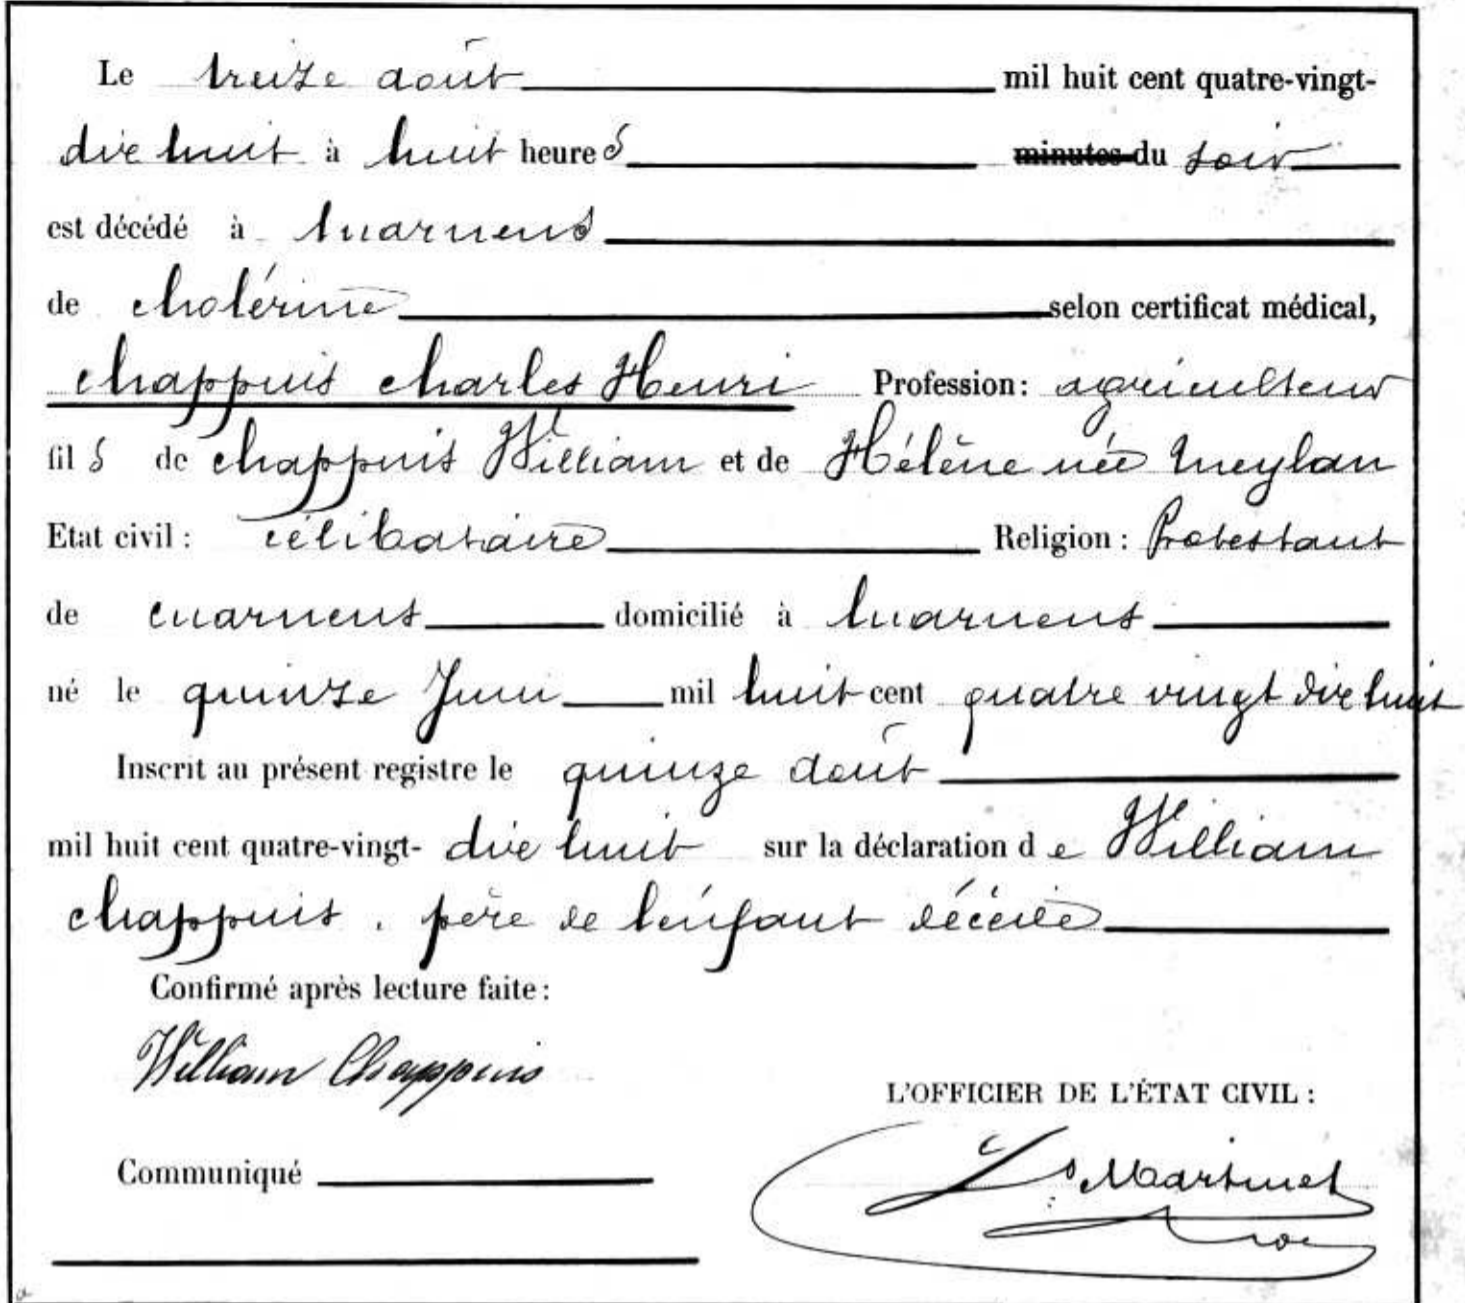 Le treize août mil huit cent quatre-vingt-
dix huit à huit heures minutes du soir
est décédé à Cuarnens
de cholérine selon certificat médical,
Chappuis Charles Henri Profession: agriculteur
fils de Chappuis William et de Hélène née Meylan
Etat civil: célibataire Religion: Protestant
de Cuarnens domicilié à Cuarnens
né le quinze Juin mil huit cent quatre vingt dix huit
Inscrit au présent registre le quinze août
mil huit cent quatre-vingt- dix huit sur la déclaration de William
Chappuis, père de l'enfant décédé
Confirmé après lecture faite:
William Chappuis
L'OFFICIER DE L'ÉTAT CIVIL:
Communiqué
Ls Martinet